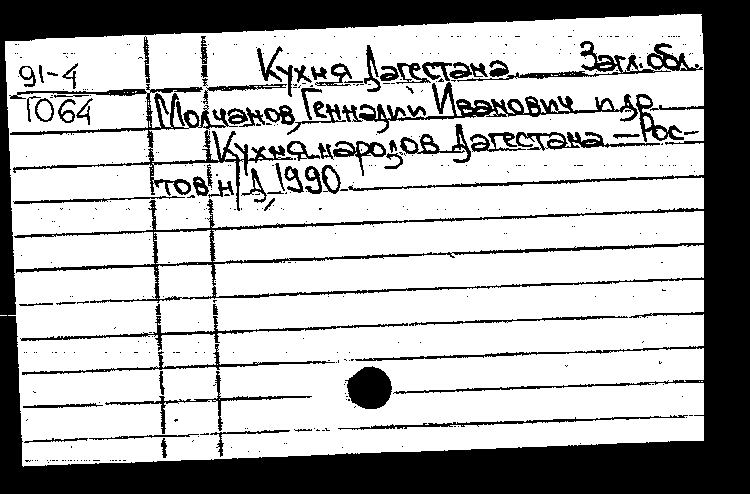 91-4 Кухня Дагестана Загл. обл.
1064 Молчанов, Геннадий Иванович и др.
Кухня народов Дагестана. — Рос-
тов н/Д, 1990.